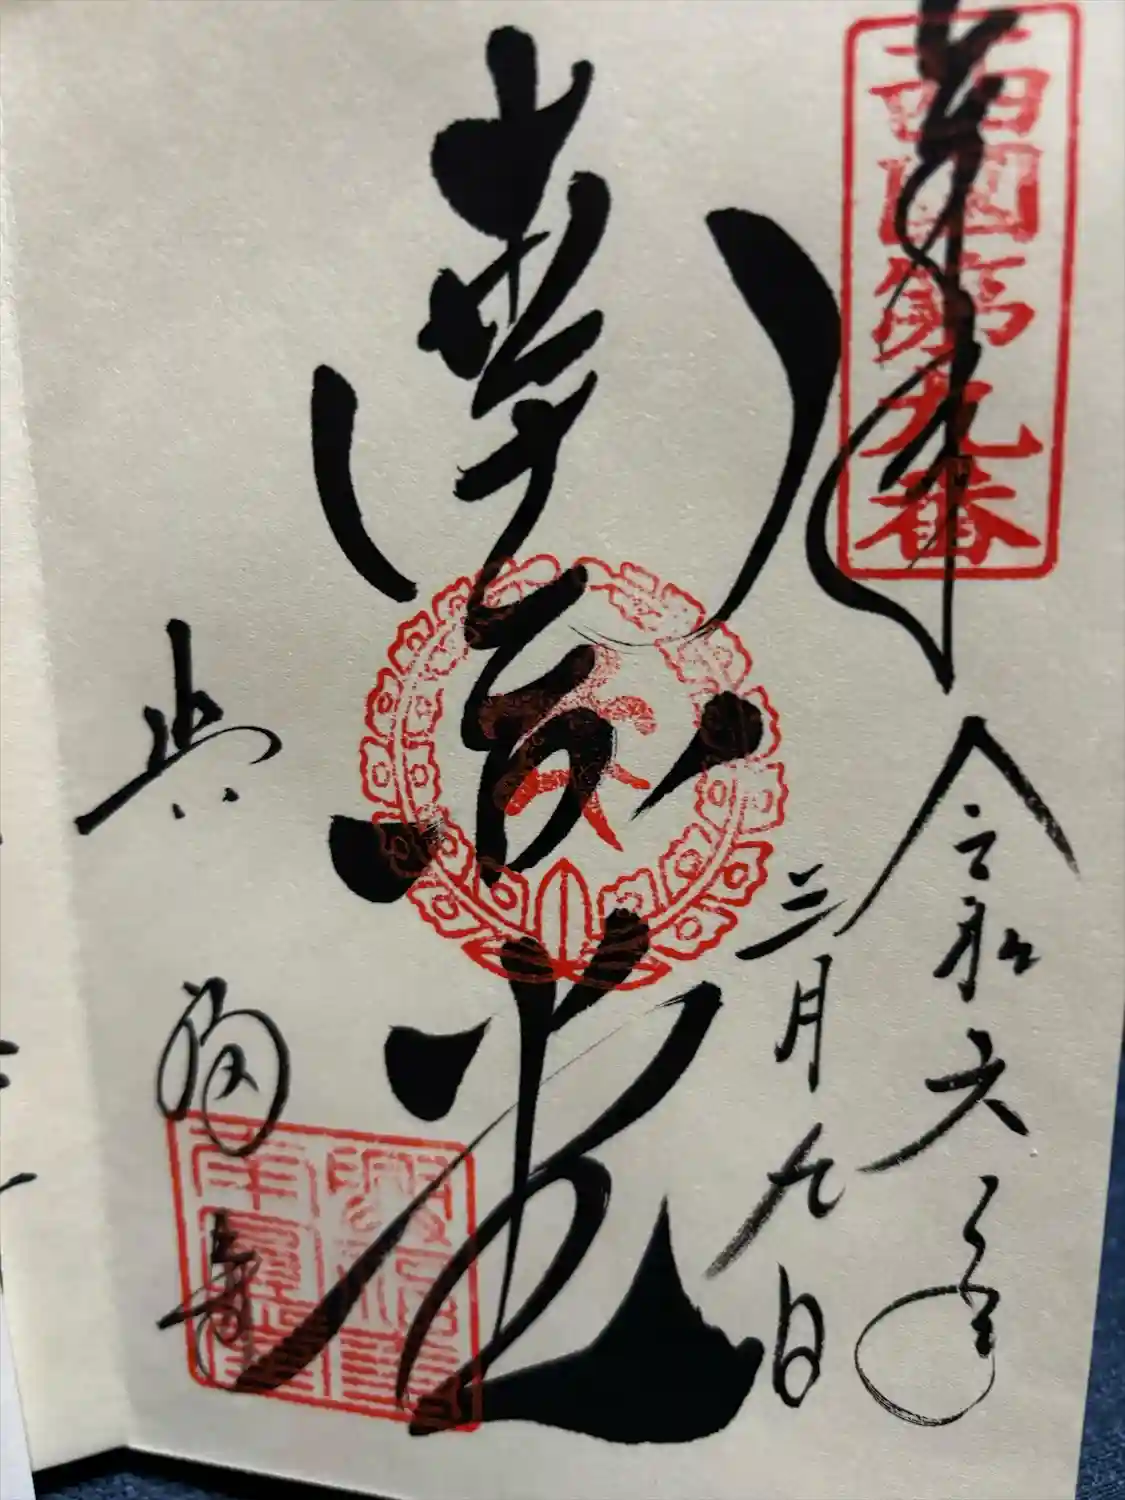 奉拝
西國第九番
令和六年
三月九日
南圓堂
興福寺